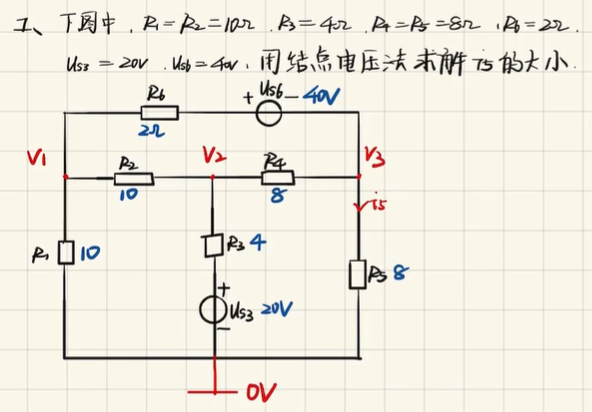 1、下图中，R₁=R₂=10Ω，R₃=4Ω，R₄=R₅=8Ω，R₆=2Ω.
Us₃=20V，Us₆=40V，用结点电压法求解i₅的大小.
R₆
+ Us₆ - 40V
2Ω
V₁
R₂
V₂
R₄
V₃
10
8
i₅
R₁ 10
R₃ 4
R₅ 8
+
Us₃ 20V
-
0V